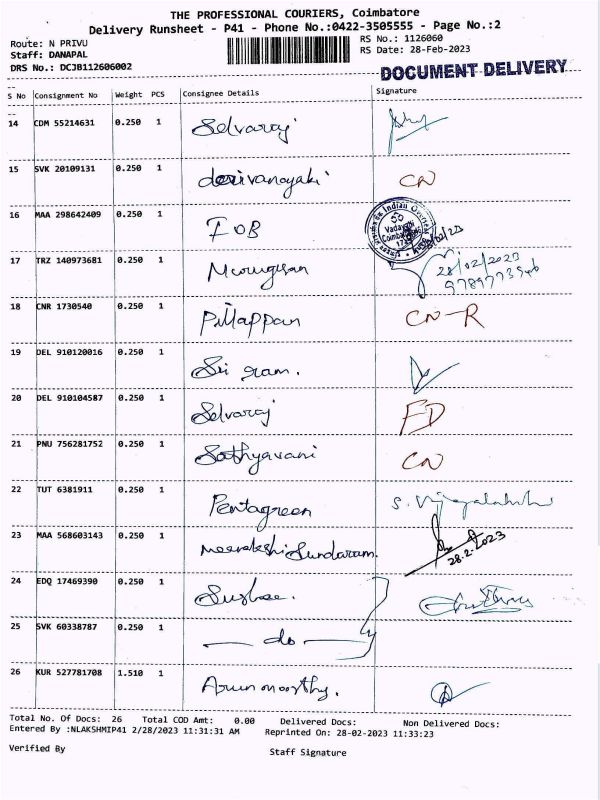 THE PROFESSIONAL COURIERS, Coimbatore
Delivery Runsheet - P41 - Phone No.:0422-3505555 - Page No.:2
Route: N PRIVU
RS No.: 1126060
Staff: DANAPAL
RS Date: 28-Feb-2023
DRS No.: DCJB112606002
DOCUMENT DELIVERY
S No Consignment No Weight PCS Consignee Details Signature
14 CDM 55214631 0.250 1 Selvaraj
15 SVK 20109131 0.250 1 CN
16 MAA 298642409 0.250 1 IOB
17 TRZ 140973681 0.250 1 Mourugesan 28/02/2023
18 CNR 1730540 0.250 1 Pillappan CN-R
19 DEL 910120016 0.250 1 Sri ram.
20 DEL 910104587 0.250 1 Selvaraj FD
21 PNU 756281752 0.250 1 Sathyavani CN
22 TUT 6381911 0.250 1 Pentagreen S. Vijayalakshmi
23 MAA 568603143 0.250 1 Meenakshi Sundaram. 28.2.2023
24 EDQ 17469390 0.250 1
25 SVK 60338787 0.250 1 — do —
26 KUR 527781708 1.510 1 Arun moorthy.
Total No. Of Docs: 26 Total COD Amt: 0.00 Delivered Docs: Non Delivered Docs:
Entered By :NLAKSHMIP41 2/28/2023 11:31:31 AM Reprinted On: 28-02-2023 11:33:23
Verified By Staff Signature